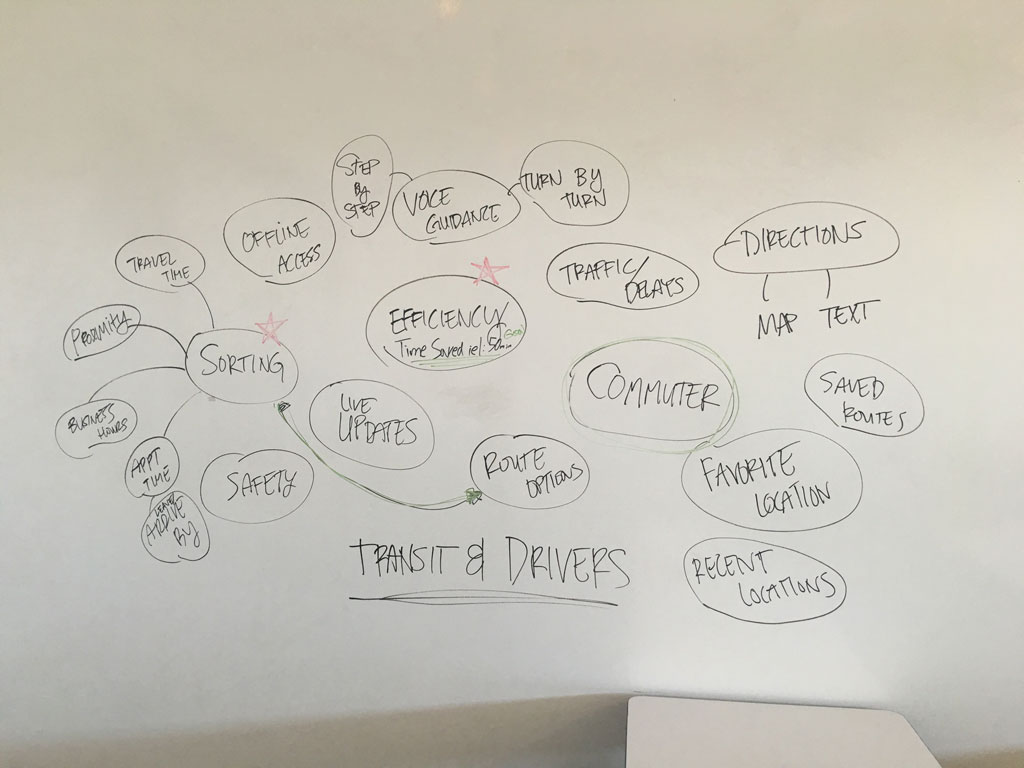 STEP
BY
STEP
VOICE
GUIDANCE
TURN BY
TURN
OFFLINE
ACCESS
TRAVEL
TIME
TRAFFIC/
DELAYS
DIRECTIONS
MAP TEXT
PROXIMITY
EFFICIENCY
Time Saved ie:
SORTING
COMMUTER
SAVED
ROUTES
BUSINESS
HOURS
LIVE
UPDATES
APPT
TIME
SAFETY
ROUTE
OPTIONS
FAVORITE
LOCATION
ARRIVE
BY
TRANSIT & DRIVERS
RECENT
LOCATIONS